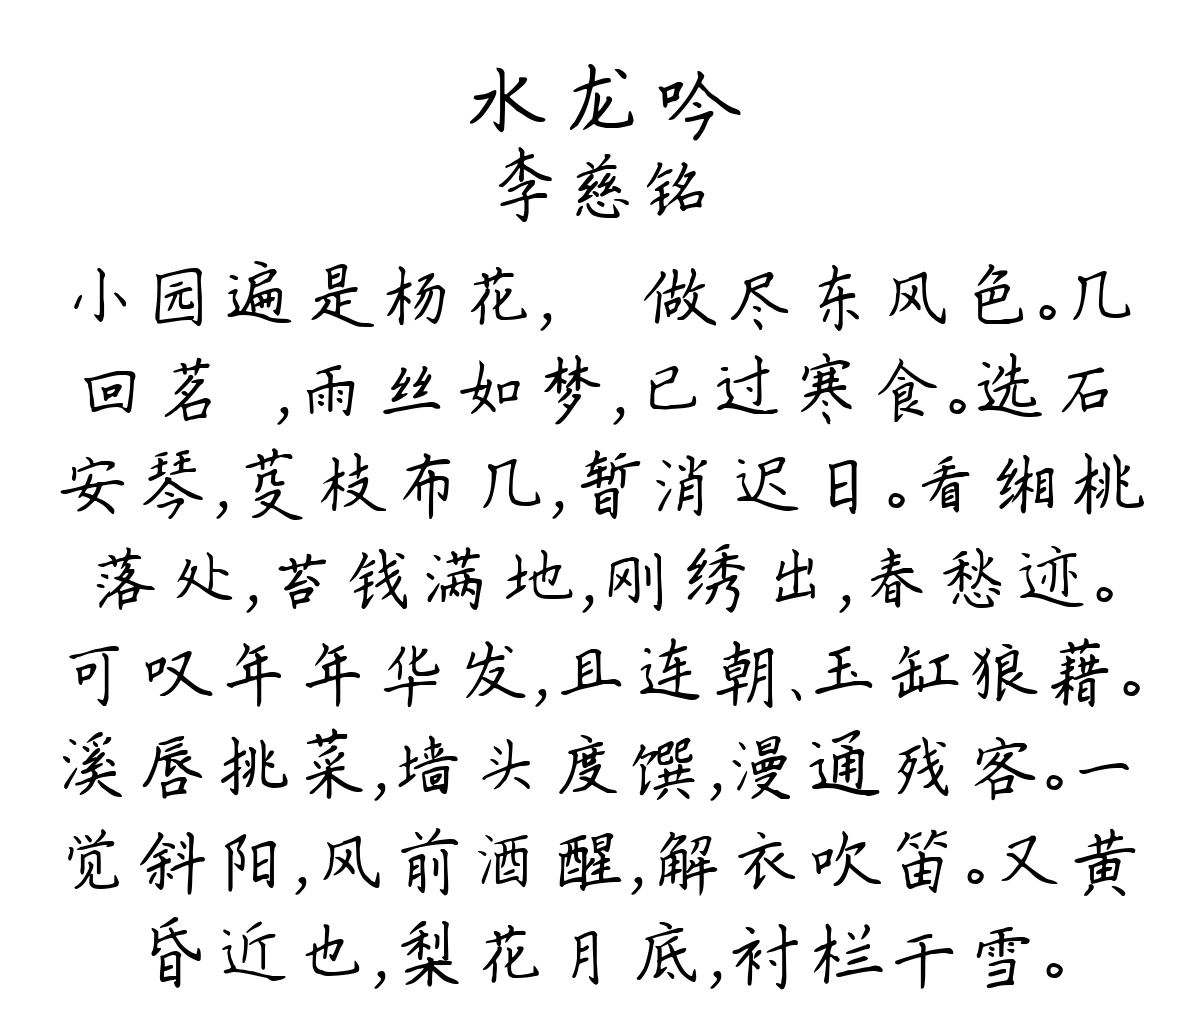 水龙吟
李慈铭
小园遍是杨花, 做尽东风色。几
回茗 ,雨丝如梦,已过寒食。选石
安琴,芟枝布几,暂消迟日。看缃桃
落处,苔钱满地,刚绣出,春愁迹。
可叹年年华发,且连朝、玉缸狼藉。
溪唇挑菜,墙头度馔,漫通残客。一
觉斜阳,风前酒醒,解衣吹笛。又黄
昏近也,梨花月底,衬栏干雪。